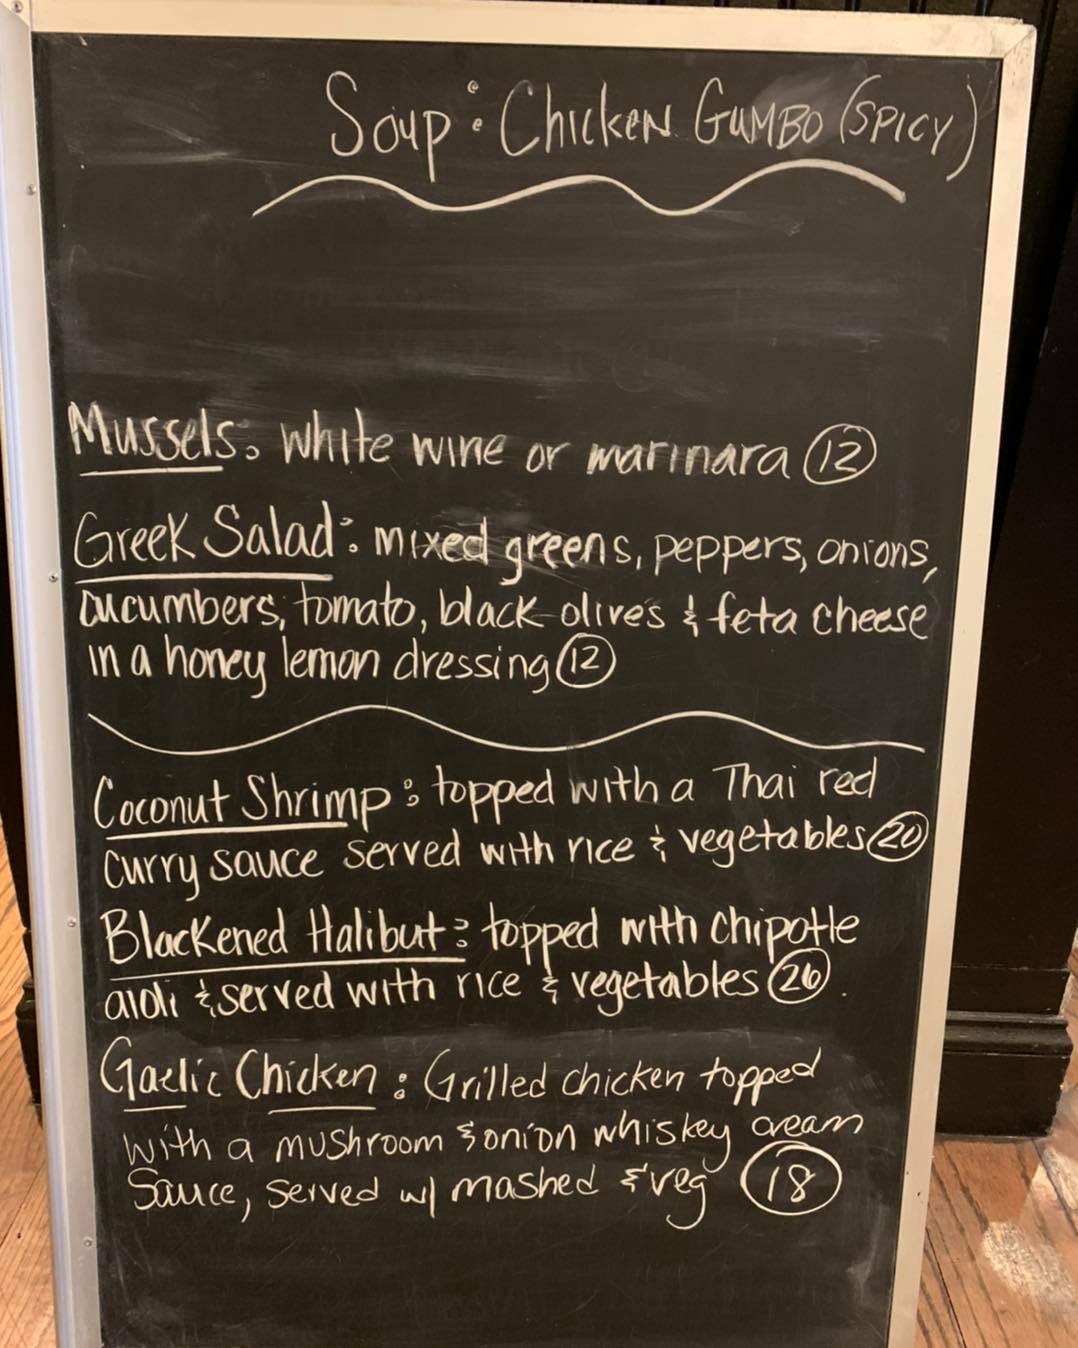 Soup: Chicken Gumbo (SPICY)
Mussels: white wine or marinara 12
Greek Salad: mixed greens, peppers, onions,
cucumbers, tomato, black olives & feta cheese
in a honey lemon dressing 12
Coconut Shrimp: topped with a Thai red
curry sauce served with rice & vegetables 20
Blackened Halibut: topped with chipotle
aioli & served with rice & vegetables 26
Gaelic Chicken: Grilled chicken topped
with a mushroom & onion whiskey cream
Sauce, served w/ mashed & veg 18